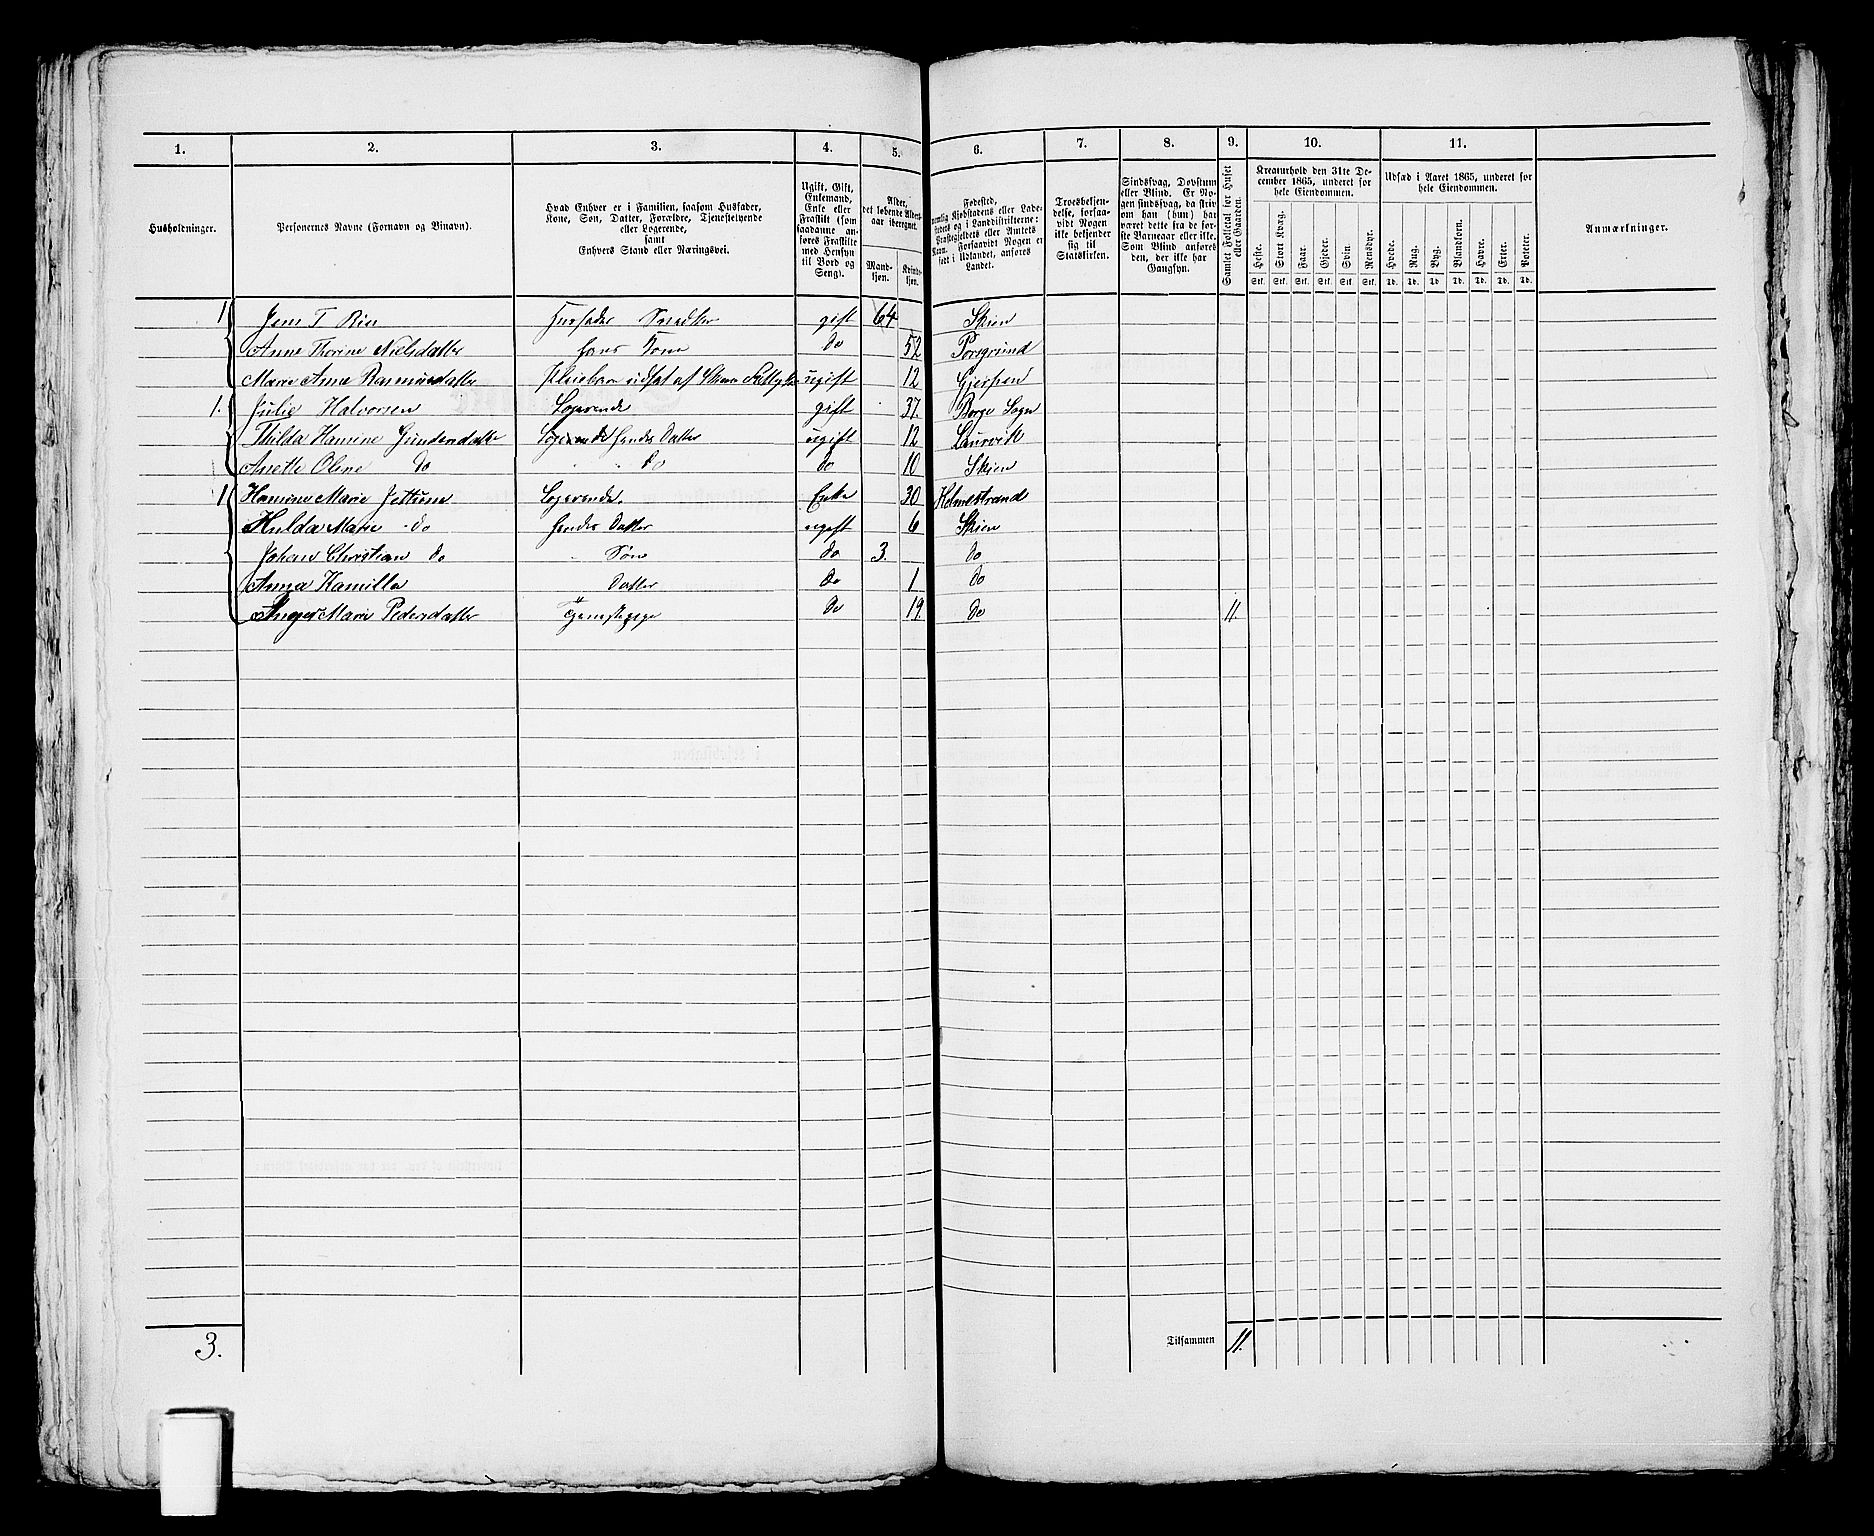 1. 2. 3. 4. 5. 6. 7. 8. 9. 10. 11.
Husholdninger.
Personernes Navne (Fornavn og Binavn).
Hvad Enhver er i Familien, saasom Husfader, Kone, Søn, Datter, Forældre, Tjenestetyende eller Logerende, samt Enhvers Stand eller Næringsvei.
Ugift, Gift, Enkemand, Enke eller Fraskilt (som saadanne anføres Fraskilte med Hensyn til Bord og Seng).
Alder, det løbende Alders-aar iberegnet.
Mand-kjøn. Kvinde-kjøn.
Fødested, nemlig Kjøbstadens eller Ladestedets og i Landdistrikterne: Præstegjeldets eller Amtets Navn. Forsaavidt Nogen er født i Udlandet, anføres Landet.
Troesbekjendelse, forsaavidt Nogen ikke bekjender sig til Statskirken.
Sindssvag, Døvstum eller Blind. Er Nogen sindssvag, da skrives om han (hun) har været dette fra de første Barneaar eller ikke. Som Blind anføres den, der ikke har Gangsyn.
Samlet Folketal for Huset eller Gaarden.
Kreaturhold den 31te December 1865, underet for hele Eiendommen.
Heste. Stort Kvæg. Faar. Gjeder. Svin. Rensdyr.
Stk. Stk. Stk. Stk. Stk. Stk.
Udsæd i Aaret 1865, underet for hele Eiendommen.
Hvede. Rug. Byg. Blandkorn. Havre. Erter. Poteter.
Td. Td. Td Td. Td. Td. Td.
Anmærkninger.
1 Jens T Husfader Snedker gift 64 Skien
Anne Thorine Nielsdatter hans Kone do 52 Porsgrund
Maren Anne Rasmusdatter Pleiebarn udsat af Skiens ugift 12 Gjerpen
1. Julie Halvorsen Logerende gift 37. Borge Sogn
Thilda Hamine Gundersdatter Logerende hendes Datter ugift 12 Laurvik
Anette Oline do do do 10 Skien
1 Hamine Marie Logerende. Enke 30 Holmestrand
Hulda Marie do hendes Datter ugift 6 Skien
Johan Christian do Søn do 3. do
Anna Kamilla Datter do 1 do
Marie Pedersdatter Tjenestepige do 19. do 11.
3. Tilsammen 11.